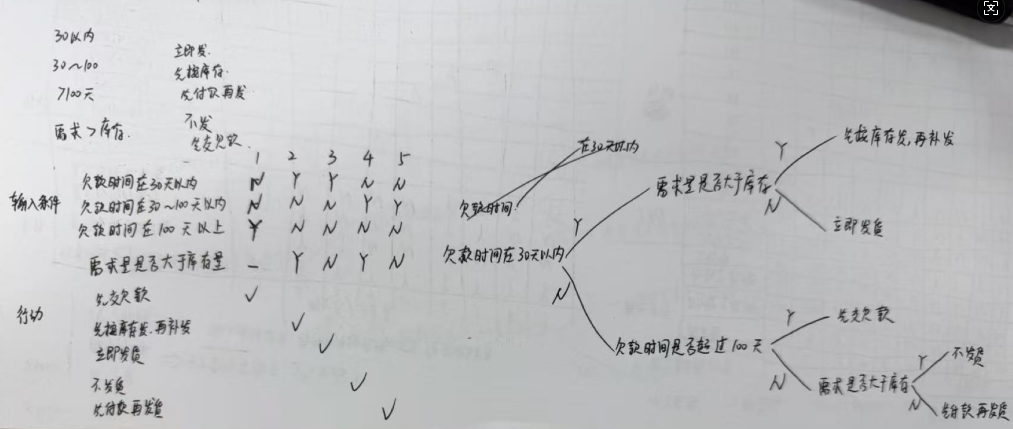 30以内
立即发.
30～100
先按库存.
>100天
先付款再发
需求>库存.
不发
先交欠款
1 2 3 4 5
输入条件
欠款时间在30天以内 N Y Y N N
欠款时间在30～100天以内 N N N Y Y
欠款时间在100天以上 Y N N N N
需求量是否大于库存量 — Y N Y N
行动
先交欠款 ✓
先按库存发,再补发 ✓
立即发货 ✓
不发货 ✓
先付款再发货 ✓
在30天以内
欠款时间.
欠款时间在30天以内
Y
需求量是否大于库存
Y
先按库存发,再补发
N
立即发货
N
欠款时间是否超过100天
Y
先交欠款
N
需求量是否大于库存
Y
不发货
N
先付款再发货